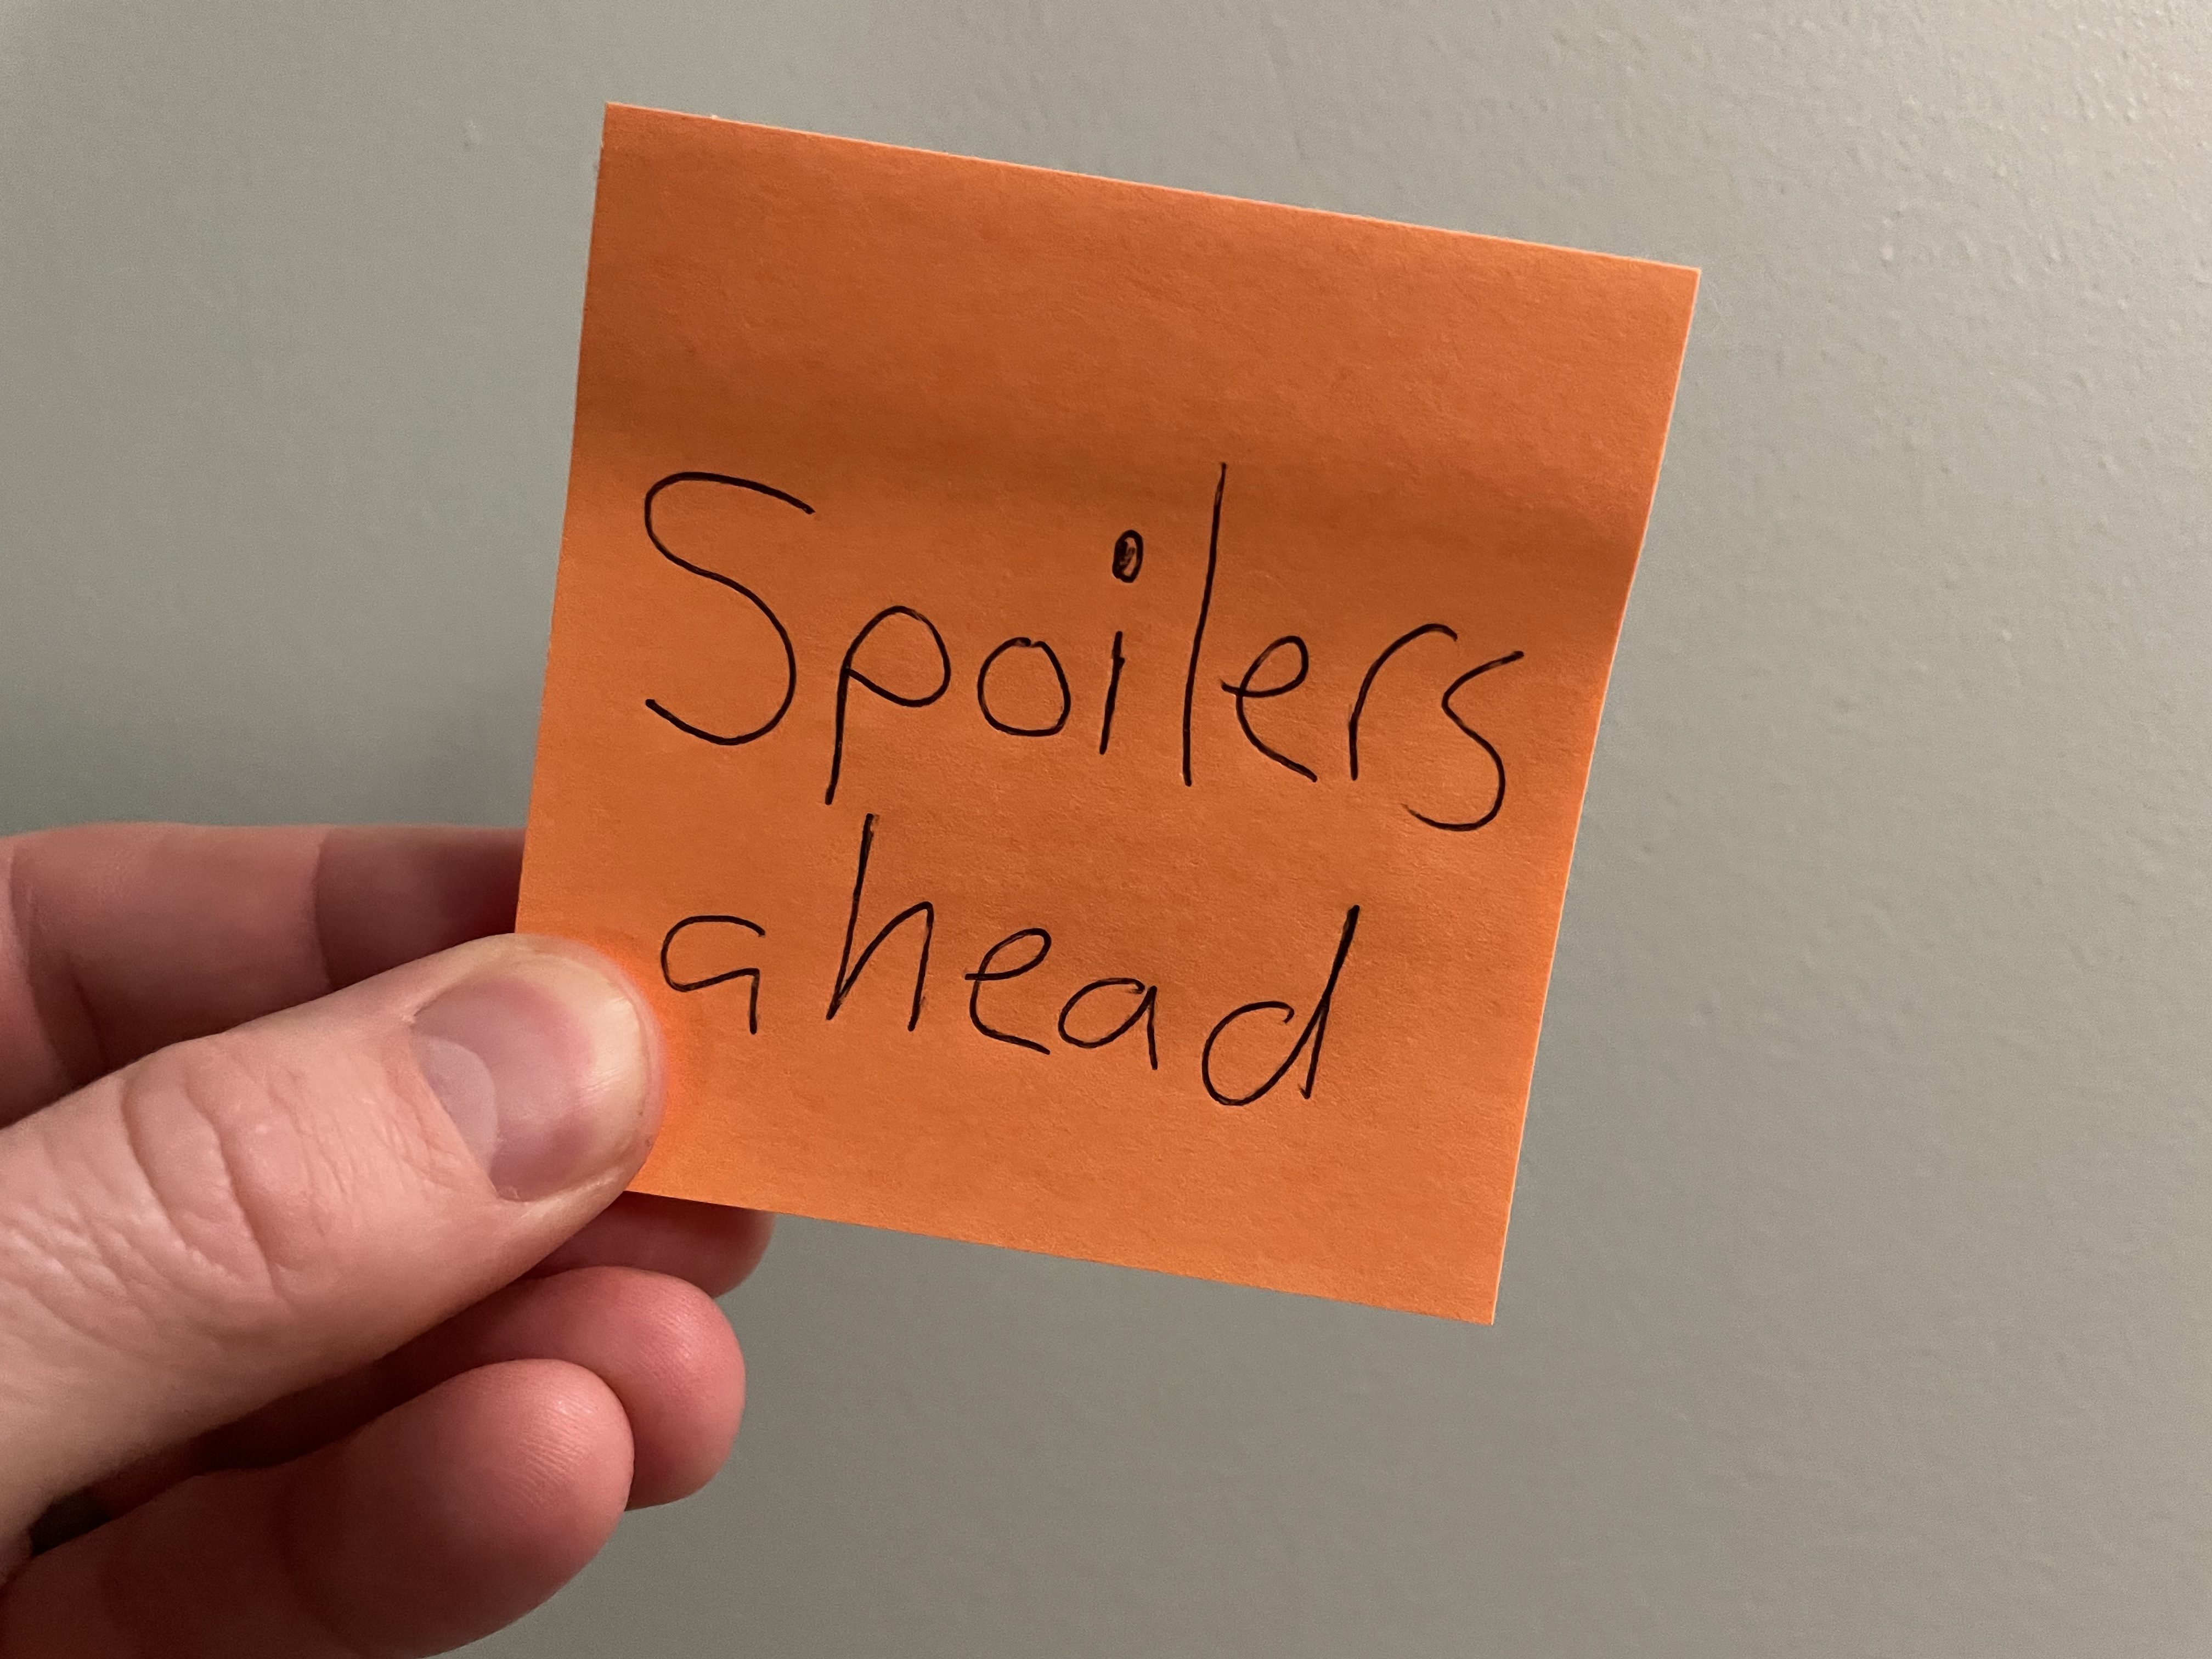 Spoilers
ahead